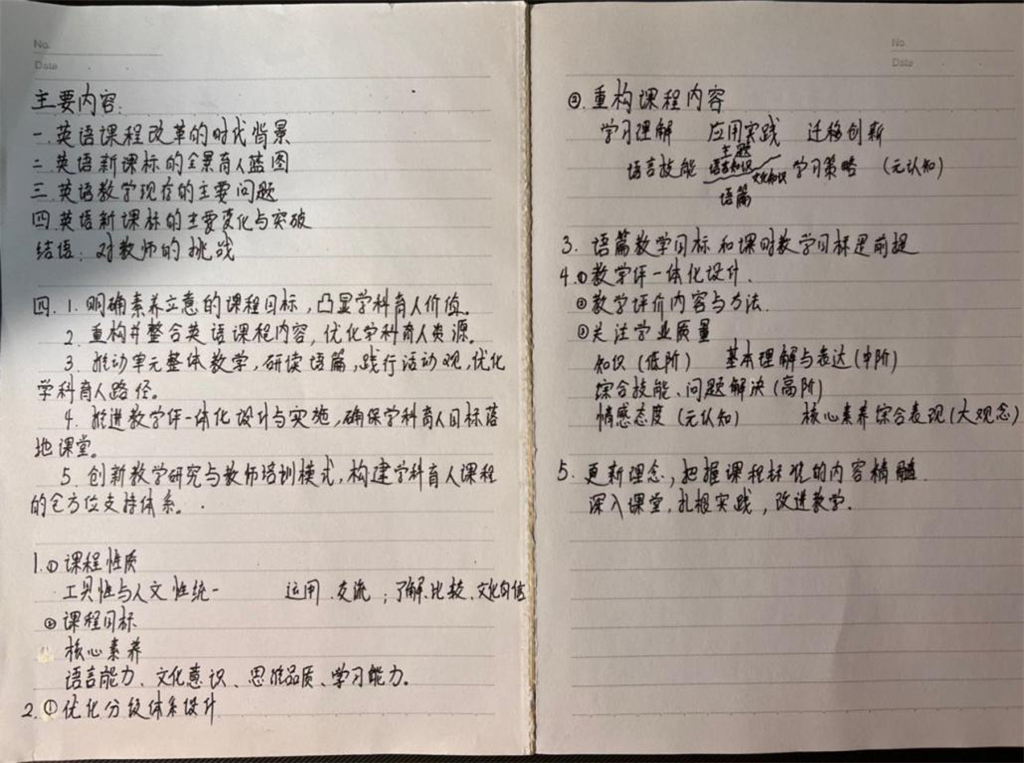 No.
Date
主要内容:
一.英语课程改革的时代背景
二.英语新课标的全景育人蓝图
三.英语教学现存的主要问题
四.英语新课标的主要变化与突破
结语:对教师的挑战
四.1.明确素养立意的课程目标,凸显学科育人价值。
2.重构并整合英语课程内容,优化学科育人资源。
3.推动单元整体教学,研读语篇,践行活动观,优化
学科育人路径。
4.推进教学评一体化设计与实施,确保学科育人目标落
地课堂。
5.创新教学研究与教师培训模式,构建学科育人课程
的全方位支持体系。
1.①课程性质
工具性与人文性统一 运用.交流;了解.比较.文化自信
②课程目标
核心素养
语言能力、文化意识、思维品质、学习能力。
2.①优化分级体系设计
No.
Date
②.重构课程内容
学习理解 应用实践 迁移创新
主题
语言技能 语言知识 文化知识 学习策略 (元认知)
语篇
3.语篇教学目标和课时教学目标是前提
4.①教学评一体化设计.
②教学评价内容与方法.
③关注学业质量
知识(低阶) 基本理解与表达(中阶)
综合技能、问题解决(高阶)
情感态度(元认知) 核心素养综合表现(大观念)
5.更新理念,把握课程标准的内容精髓.
深入课堂,扎根实践,改进教学.